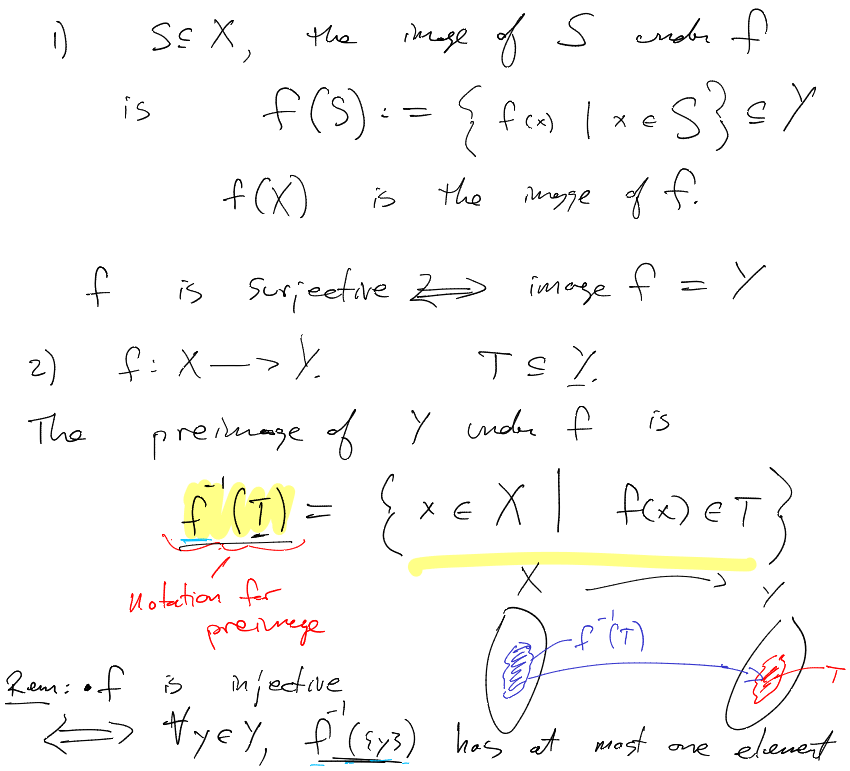 1) S ⊆ X, the image of S under f
is f(S) := { f(x) | x ∈ S } ⊆ Y
f(X) is the image of f.
f is surjective ⟺ image f = Y
2) f: X → Y. T ⊆ Y.
The preimage of Y under f is
f⁻¹(T) = { x ∈ X | f(x) ∈ T }
X → Y
notation for
preimage
f⁻¹(T)
T
Rem: • f is injective
⟺ ∀ y ∈ Y, f⁻¹({y}) has at most one element